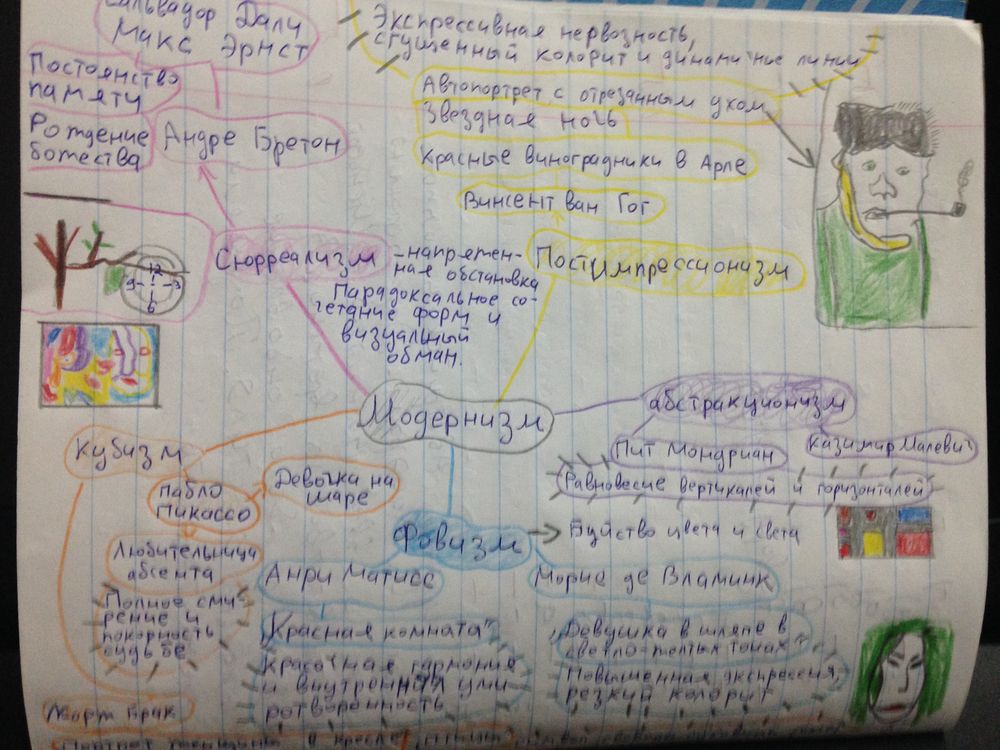 Сальвадор Дали
Макс Эрнст
Экспрессивная нервозность,
сгущенный колорит и динамичные линии
Постоянство
памяти
Автопортрет с отрезанным ухом
Звездная ночь
Рождение
божества
Андре Бретон
Красные виноградники в Арле
Винсент ван Гог
Сюрреализм
-напряжен-
ная обстановка
Парадоксальное со-
четание форм и
визуальный
обман.
Постимпрессионизм
12
9
3
6
Модернизм
абстракционизм
Пит Мондриан
Казимир Малевич
Равновесие вертикалей и горизонталей
Кубизм
Пабло
Пикассо
Девочка на
шаре
Любительница
абсента
Полное сми-
рение и
покорность
судьбе
Жорж Брак
Фовизм
Буйство цвета и света
Анри Матисс
"Красная комната"
Красочная гармония
и внутренняя уми
ротворенность
Морис де Вламинк
"Девушка в шляпе в
светло-желтых тонах"
Повышенная экспрессия,
резкий колорит
в кресле